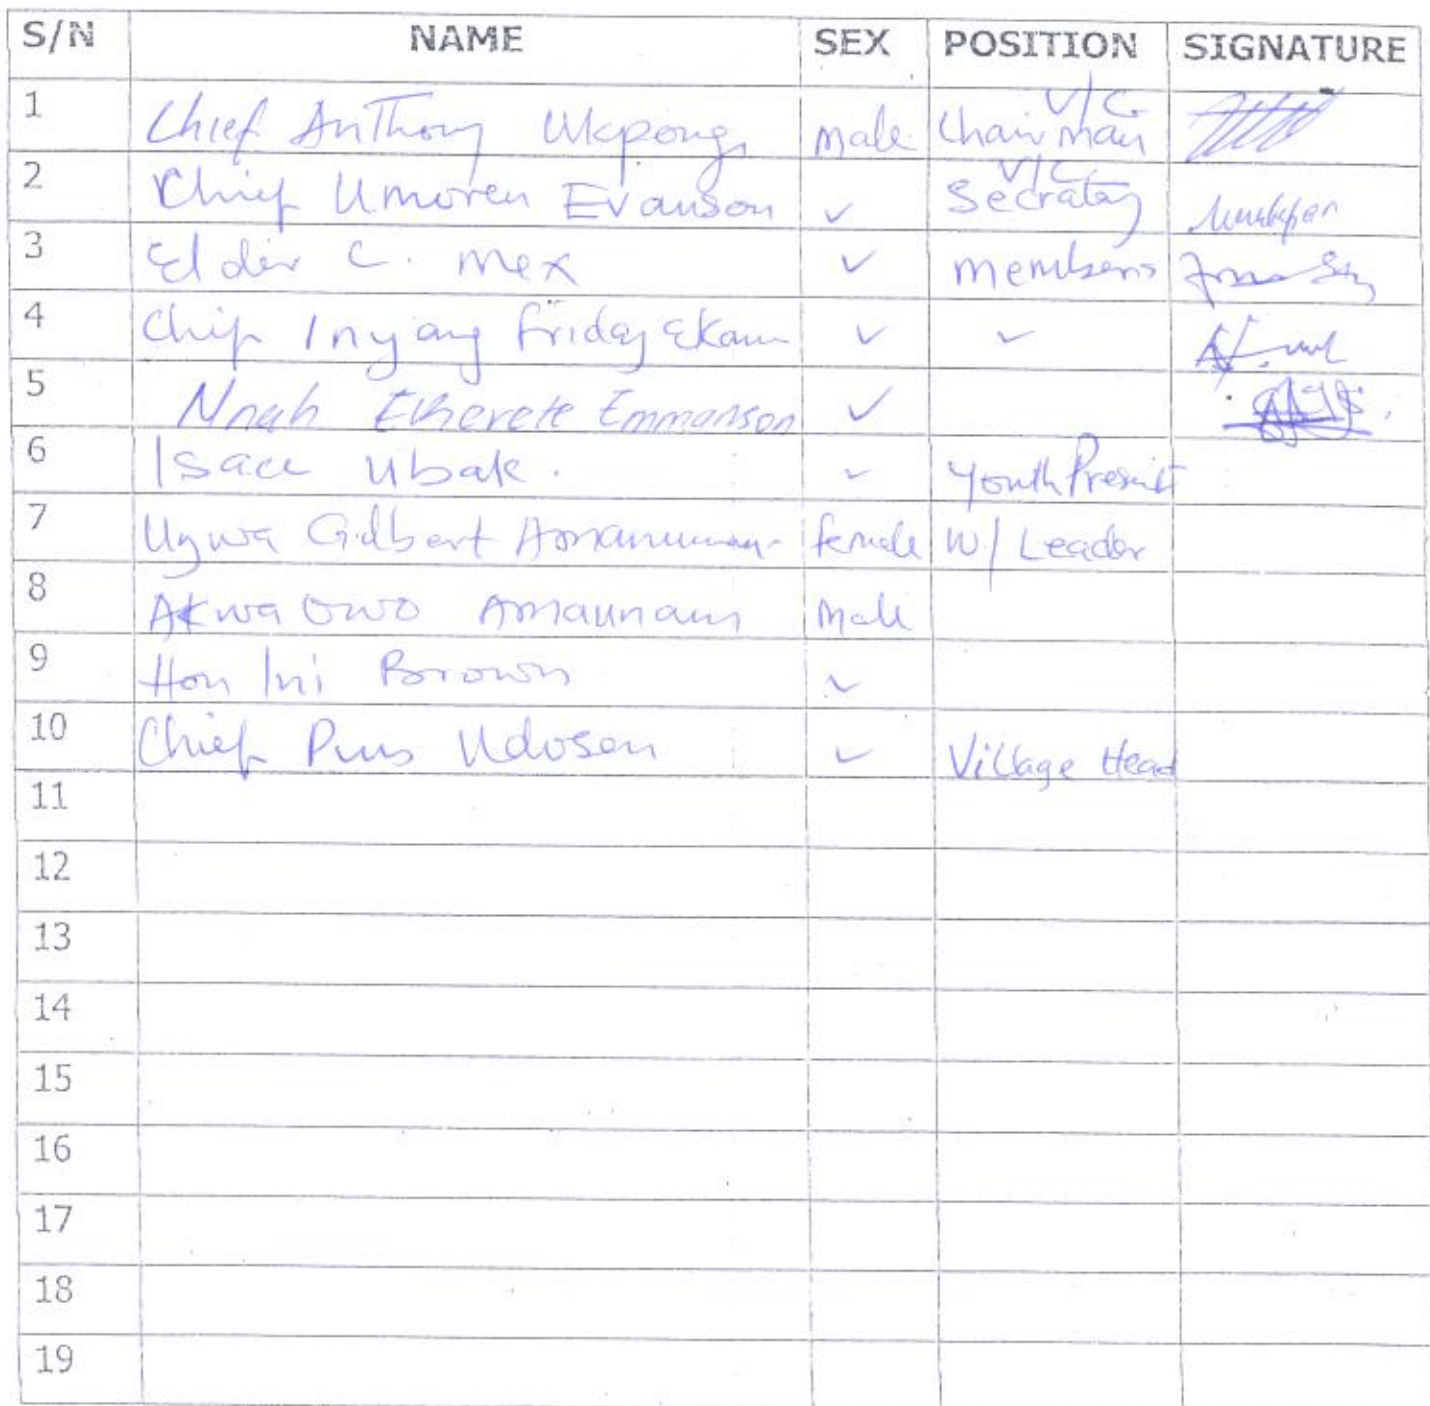 S/N NAME SEX POSITION SIGNATURE
1 Chief Anthony Ukpong Male V/C Chairman
2 Chief Umoren Evanson ✓ V/C Secratay
3 Elder C. Mex ✓ members
4 Chief Inyang Friday Ekam ✓ ✓
5 Nnah Etherete Emmanson ✓
6 Isace Ubak. ✓ Youth Presint
7 Gilbert female W/Leader
8 Akwa Owo Amaunam Male
9 Hon Ini Brown ✓
10 Chief Pius Udosen ✓ Village Head
11
12
13
14
15
16
17
18
19